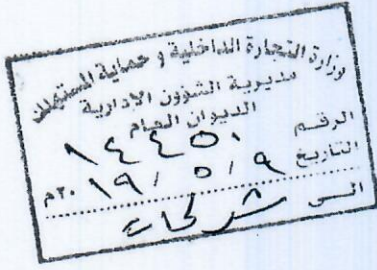 وزارة التجارة الداخلية و حماية المستهلك
مديرية الشؤون الإدارية
الديوان العام
الرقم ١٤٤٥١
التاريخ ٩ / ٥ / ٢٠١٩م
الى شركات